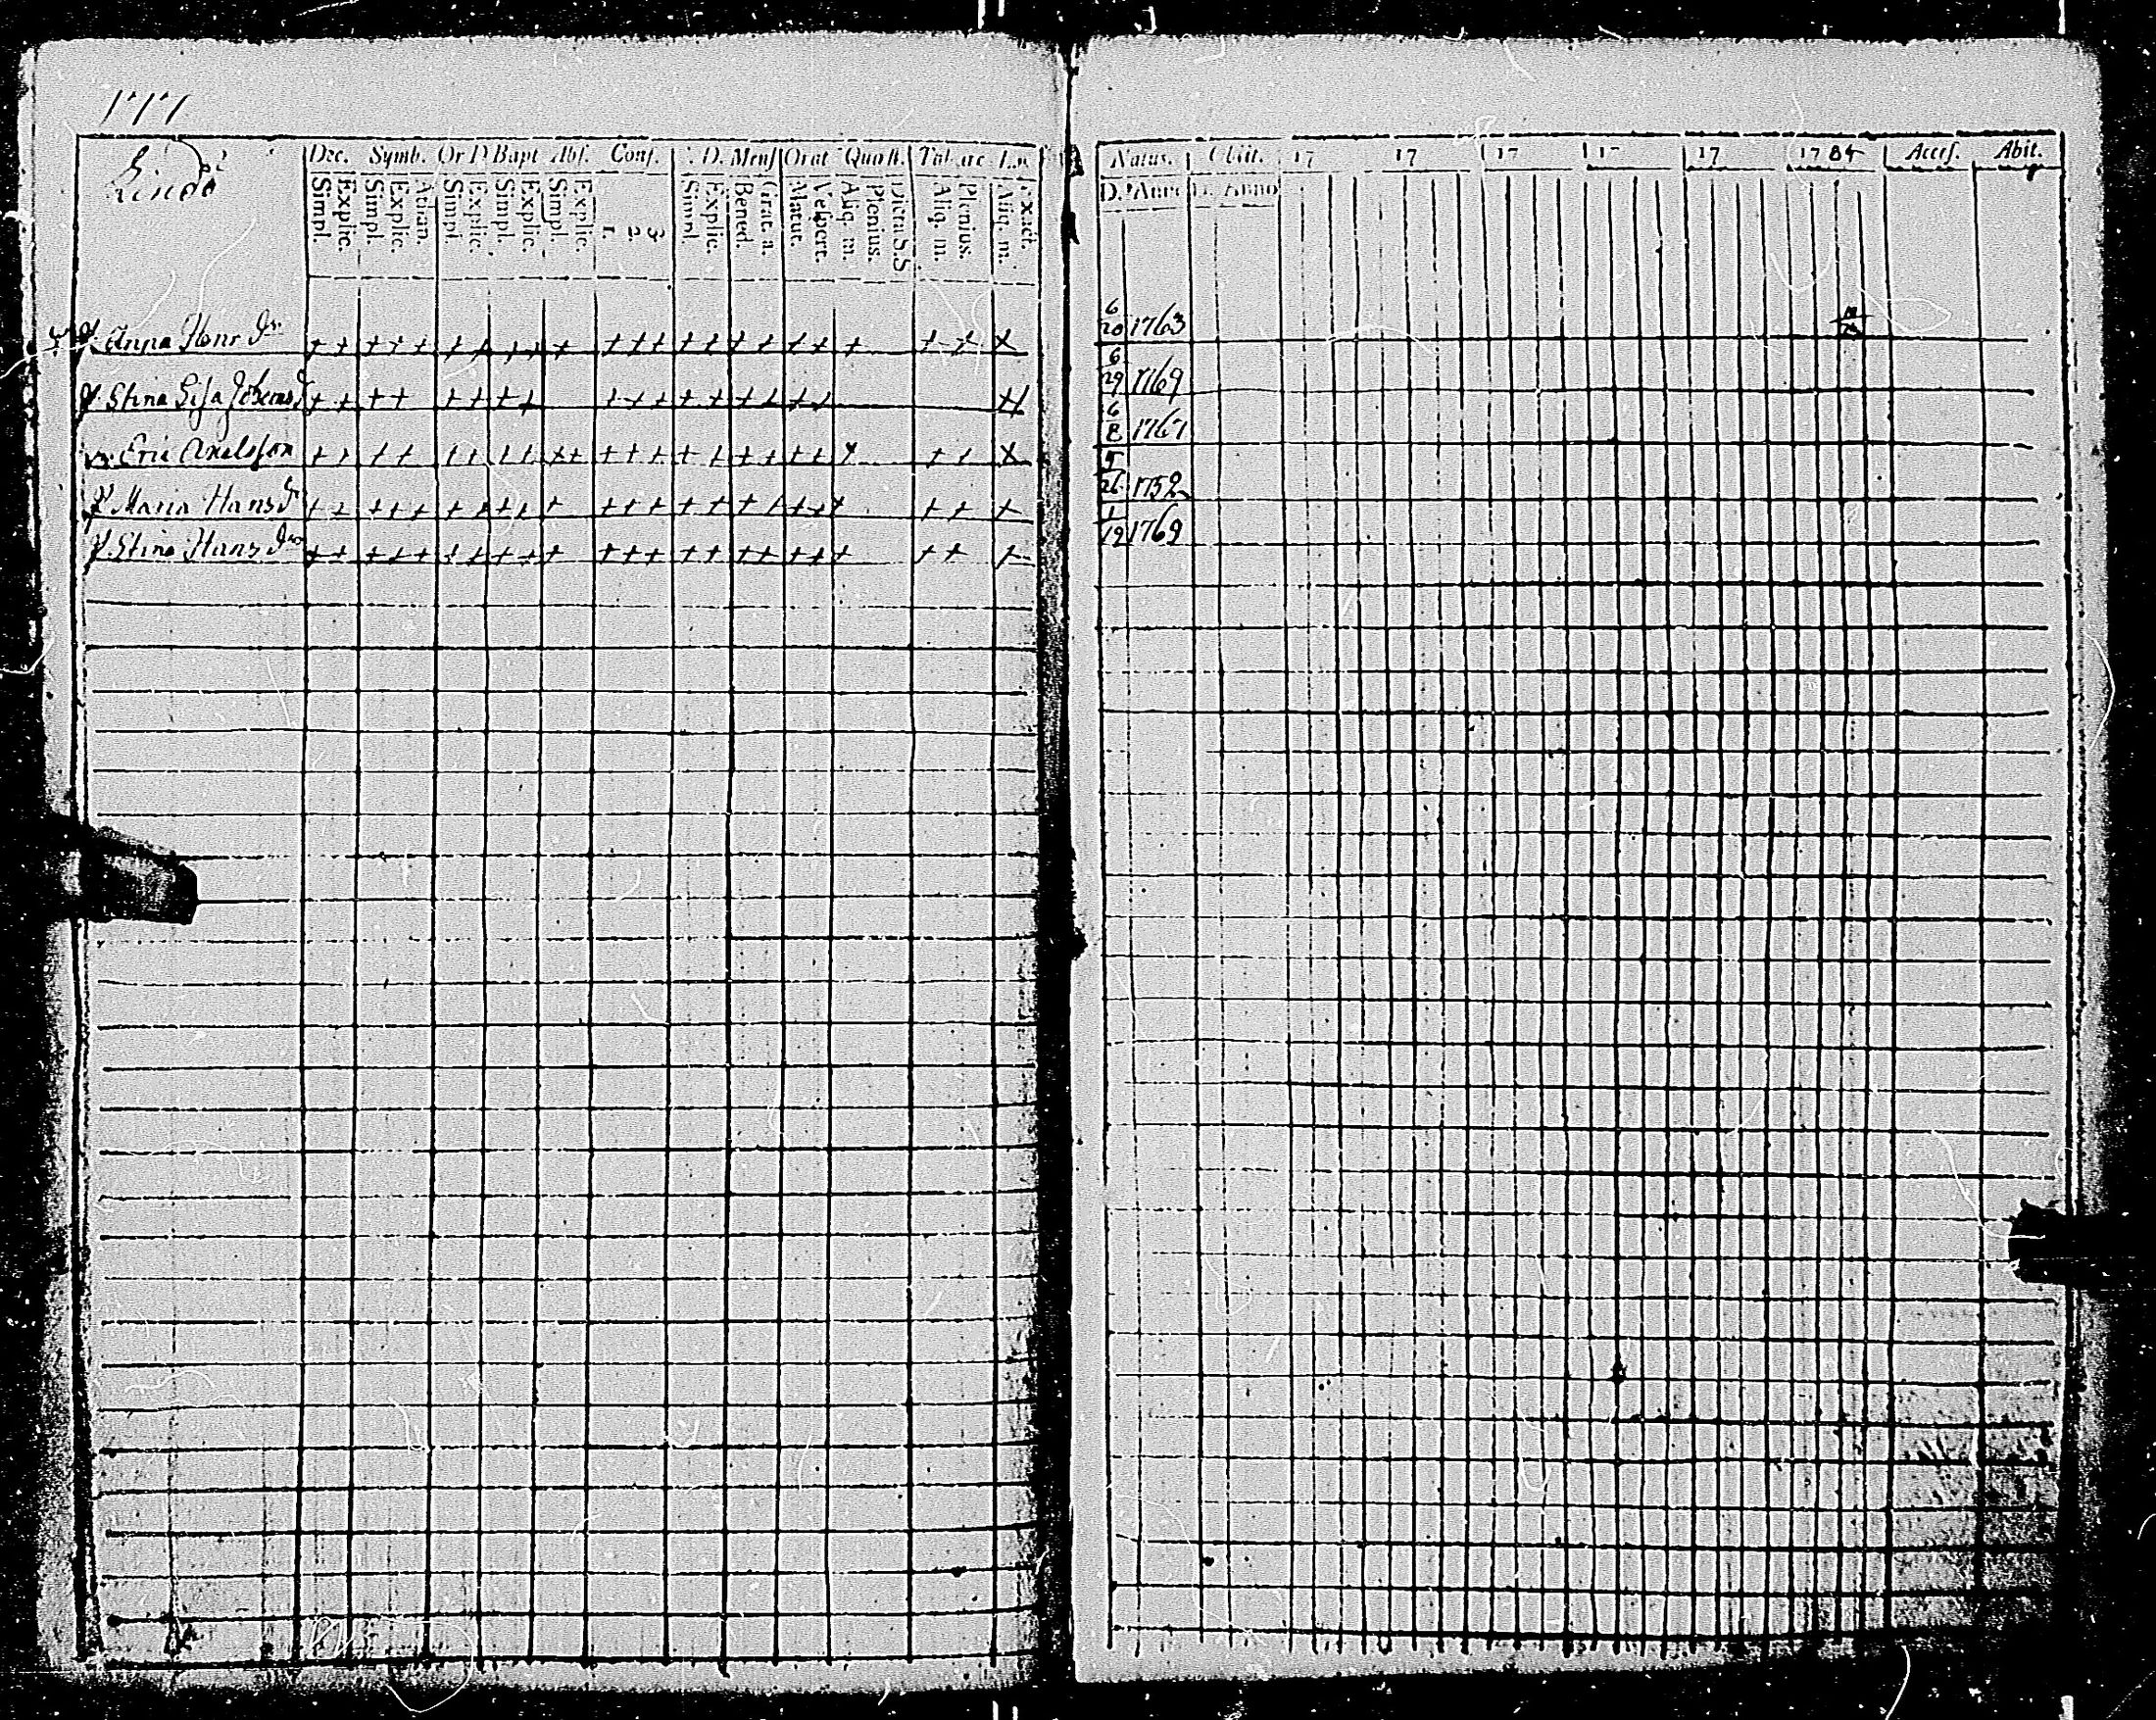 1777
Lindö
Dec. Symb. Or D Bapt Abs. Conf. C. D. Mens Orat Quæst. Tab
Simpl. Explic. Simpl. Explic. Athan. Simpl. Explic. Simpl. Explic. Simpl. Explic. 1. 2. 3. Simpl. Explic. Bened. Grat. a. Matut. Vespert. Aliq. m. Plenius. Dicta S.S Aliq. m. Plenius. Aliq. m. Exact.
Anna Henr dr + + + + + + + + + + + + + + + + + + + + + + x
Stina Lisa + + + + + + + + + + + + + + + + +
Eric + + + + + + + + + + + + + + + + + + + x + + x
Maria Hans dr + + + + + + + + + + + + + + + + + + + + + + +
Stina Hans dr + + + + + + + + + + + + + + + + + + + + + + +
Natus. Obiit. 17 17 17 17 17 1784 Access. Abit.
D. Anno D. Anno
6/20 1763
6/29 1769
6/8 1767
5/26 1752
1/19 1769